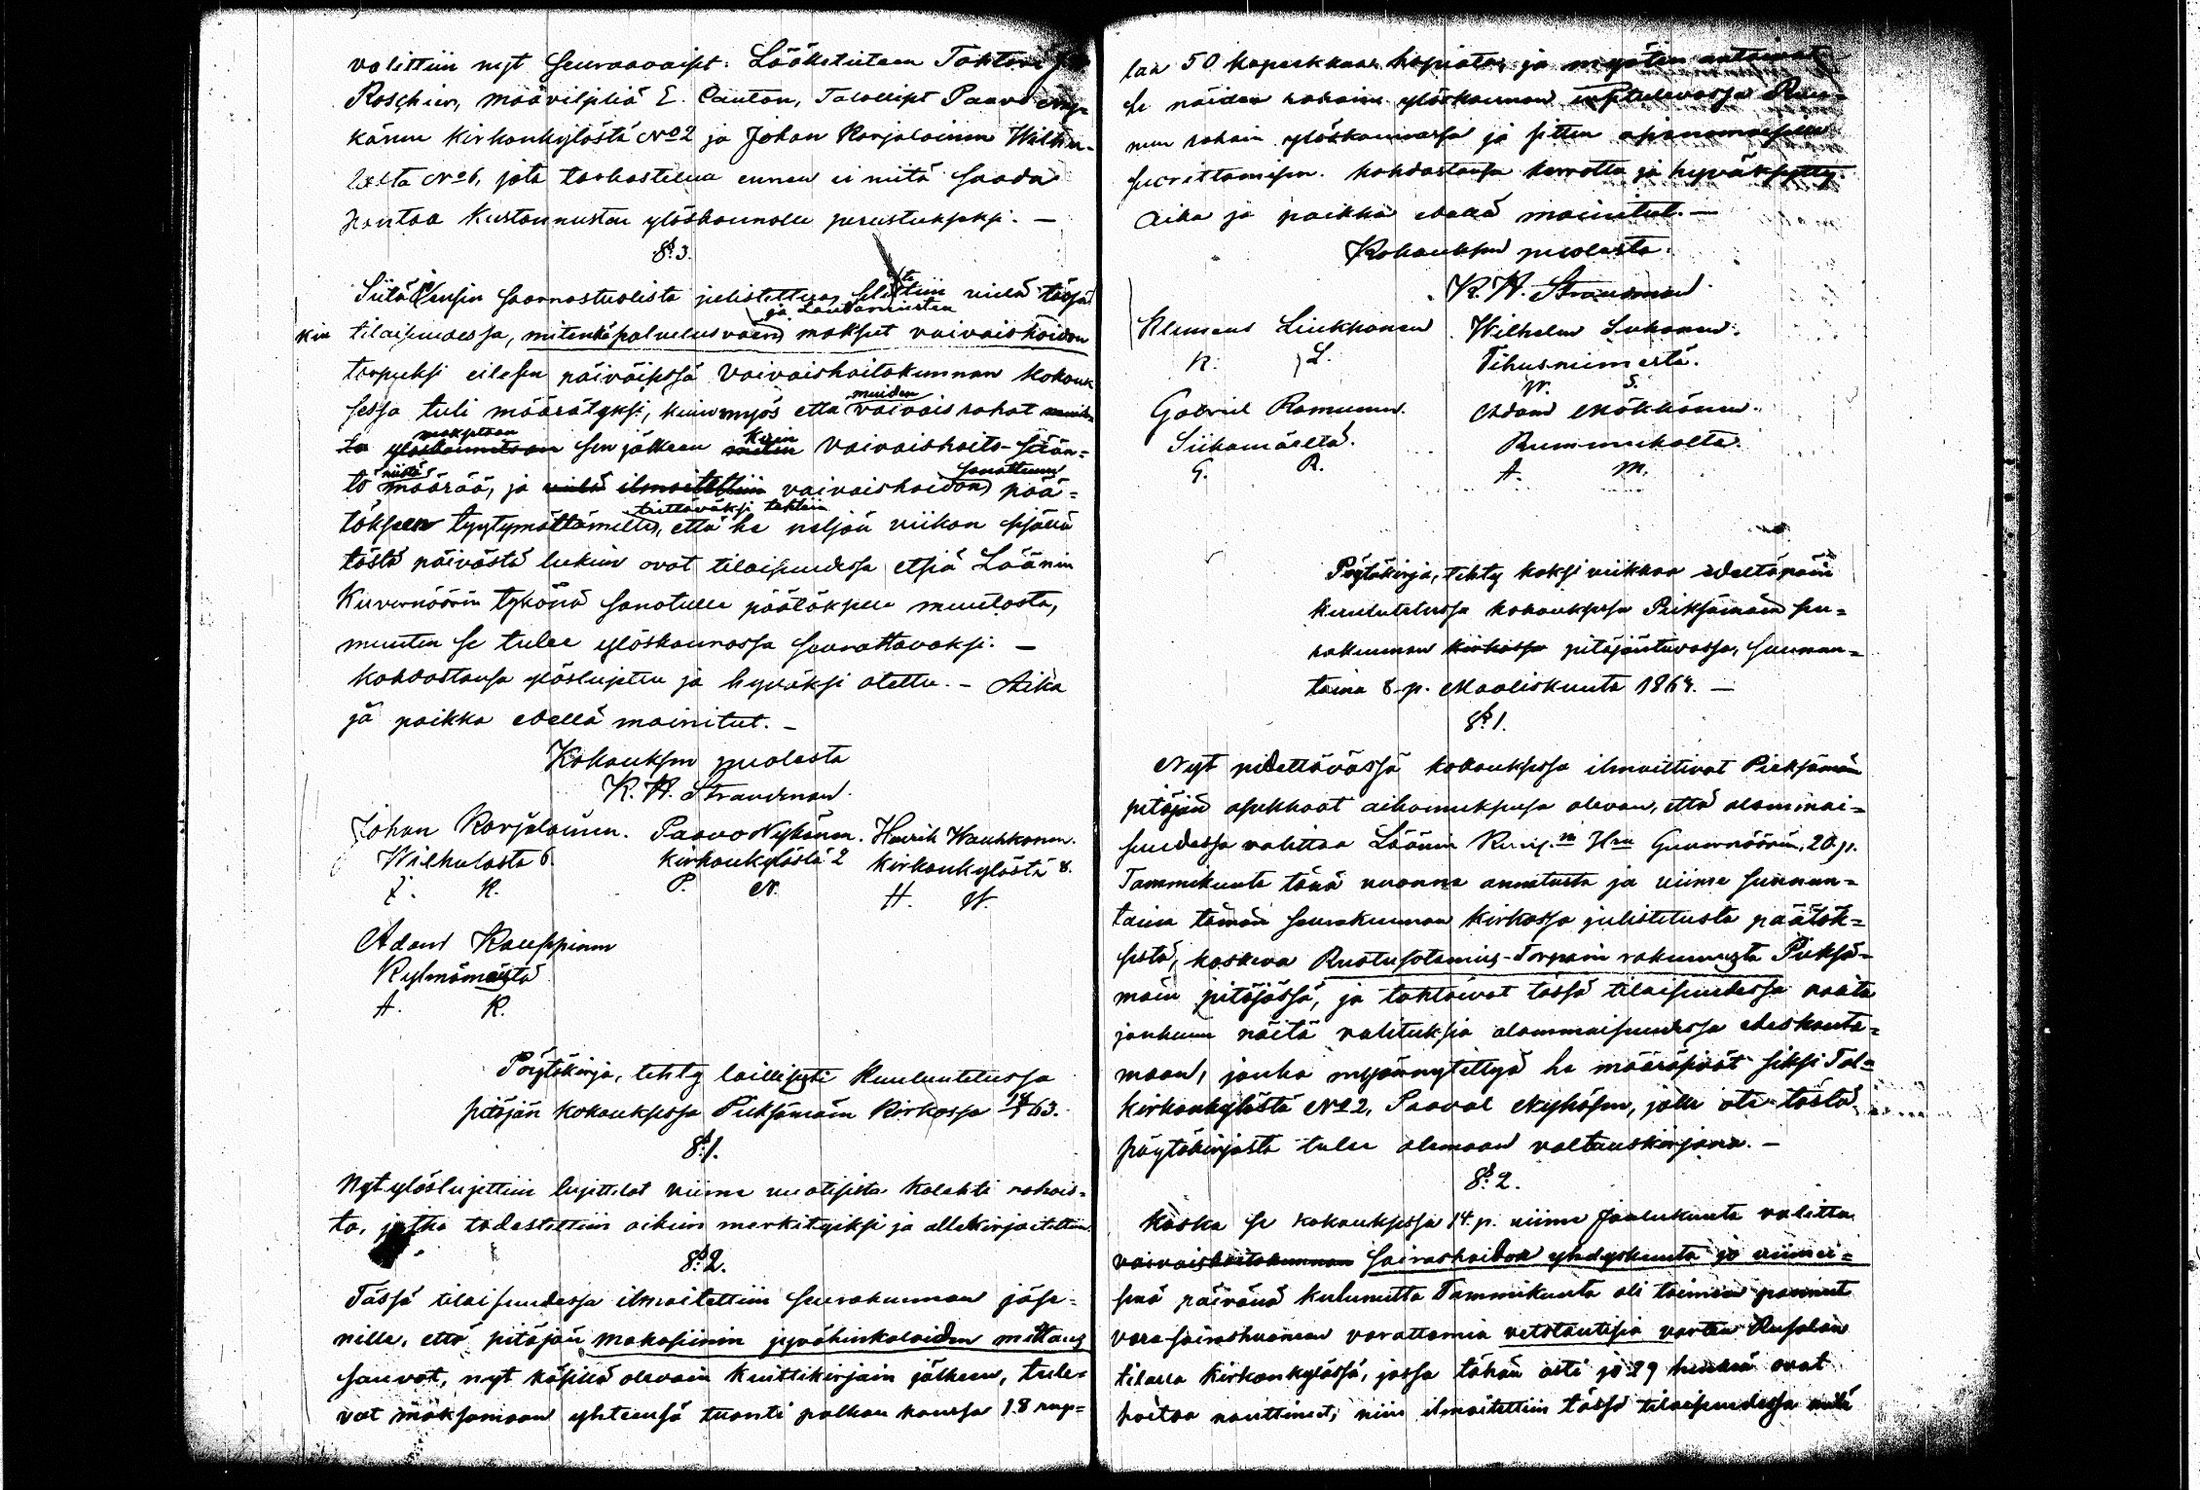 valittiin nyt seuraavaiset: Lääketieteen Tohtori
Roschier, määviljeliä E. Cantan, Talolliset Paavo Ny-
känen Kirkonkylästä No 2 ja Johan Karjalainen Wilhu-
lasta No 6, jota tarkastelua ennen ei niitä saada
panttaa kustannusten ylöskannolle perustukseksi. —
§ 3.
Siitä saarnastuolista julistettua, vielä tässä
ja Lautamiesten
kin tilaisuudessa, mitenkä palvelusväen maksut vaivaishoidon
tarpeeksi eilisen päiväisessä Vaivaishoitokunnan kokouk-
muiden
sessa tuli määrätyksi, kuin myös että vaivaisrahat
maksetaan kuin
ta ylöskannetaan sen jälkeen Vaivaishoito-Sään-
niistä sanottuun
tö määrää, ja vielä ilmoitettiin vaivaishoidon pää-
tiettäväksi tehtiin
tökseen tyytymättömille, että he neljän viikon sisällä
tästä päivästä lukien ovat tilaisuudessa etsiä Läänin
Kuvernöörin tykönä sanotulle päätökselle muutosta,
muuten se tulee ylöskannossa seurattavaksi. —
Kohdastansa ylösluettu ja hyväksi otettu. — Aika
ja paikka edellä mainitut. —
Kokouksen puolesta
K. H. Strandman.
Johan Karjalainen. Paavo Nykänen. Henrik Wauhkonen.
Wilhulasta 6. Kirkonkylästä 2 Kirkonkylästä 8.
J. K. P. N. H. W.
Adam Kauppinen
Kylmämäestä
A. K.
Pöytäkirja, tehty laillisesti kuulutetussa
pitäjän kokouksessa Pieksämäen Kirkossa 63.
§ 1.
Nyt ylösluettiin luettelot viime vuotisista kolehti rahois-
ta, jotka todistettiin oikein merkityiksi ja allekirjoitettiin.
§ 2.
Tässä tilaisuudessa ilmoitettiin seurakunnan jäse-
nille, että pitäjän makasiinin jyvähinkaloiden mittaus
sauvat, nyt käsillä olevain kuittikirjain jälkeen, tule-
vat maksamaan yhteensä tuonti palkan kanssa 18 rup-
laa 50 kopeekkaa hopiata, ja myöten antoivat
he näiden rahain ylöskannon tulevassa
mun rahain ylöskannossa ja sitten
suorittamisen. Kohdastansa kerrottu ja hyväksytty.
Aika ja paikka edellä mainitut. —
Kokouksen puolesta:
K. H. Strandman.
Klemens Liukkonen Wilhelm Suhonen
K. L. Tihusniemestä.
W. S.
Gabriel Ramunen. Adam Mökkönen.
Siikamäeltä. Rummukalta.
G. R. A. M.
Pöytäkirja, tehty kaksi viikkoa edeltäpäin
kuulutetussa kokouksessa Pieksämäen seu-
rakunnan kirkossa pitäjäntuvassa, sunnun-
taina 8 p. Maaliskuuta 1864. —
§ 1.
Nyt pidettävässä kokouksessa ilmoittivat Pieksämän
pitäjän asukkaat aikomuksensa olevan, että alammai-
suudessa valittaa Läänin Herra Guvernöörin, 20 p.
Tammikuuta tänä vuonna annetusta ja viime sunnun-
taina tämän seurakunnan Kirkossa julistetusta päätök-
sestä, koskeva Ruotusotamies-Torpain rakennusta Pieksä-
mäen pitäjässä, ja tahtoivat tässä tilaisuudessa vaatia
jonkun näitä valituksia alammaisuudessa edeskanta-
maan, jonka myönnytettyä he määräsivät siksi Tal.
Kirkonkylästä No 2, Paaval Nykäsen, jolle ote tästä
pöytäkirjasta tulee olemaan valtauskirjana. —
§ 2.
Koska se kokouksessa 14 p. viime Joulukuuta valittu
vaivaishoitokunnan sairashoidon yhdyskunta jo viimei-
senä päivänä kulunutta Tammikuuta oli toimeen pannut
vara-sairashuoneen varattomia vetotautisia varten Rusalan
tilalla Kirkonkylässä, jossa tähän asti jo 29 henkeä ovat
hoitoa nauttineet, niin ilmoitettiin tässä tilaisuudessa